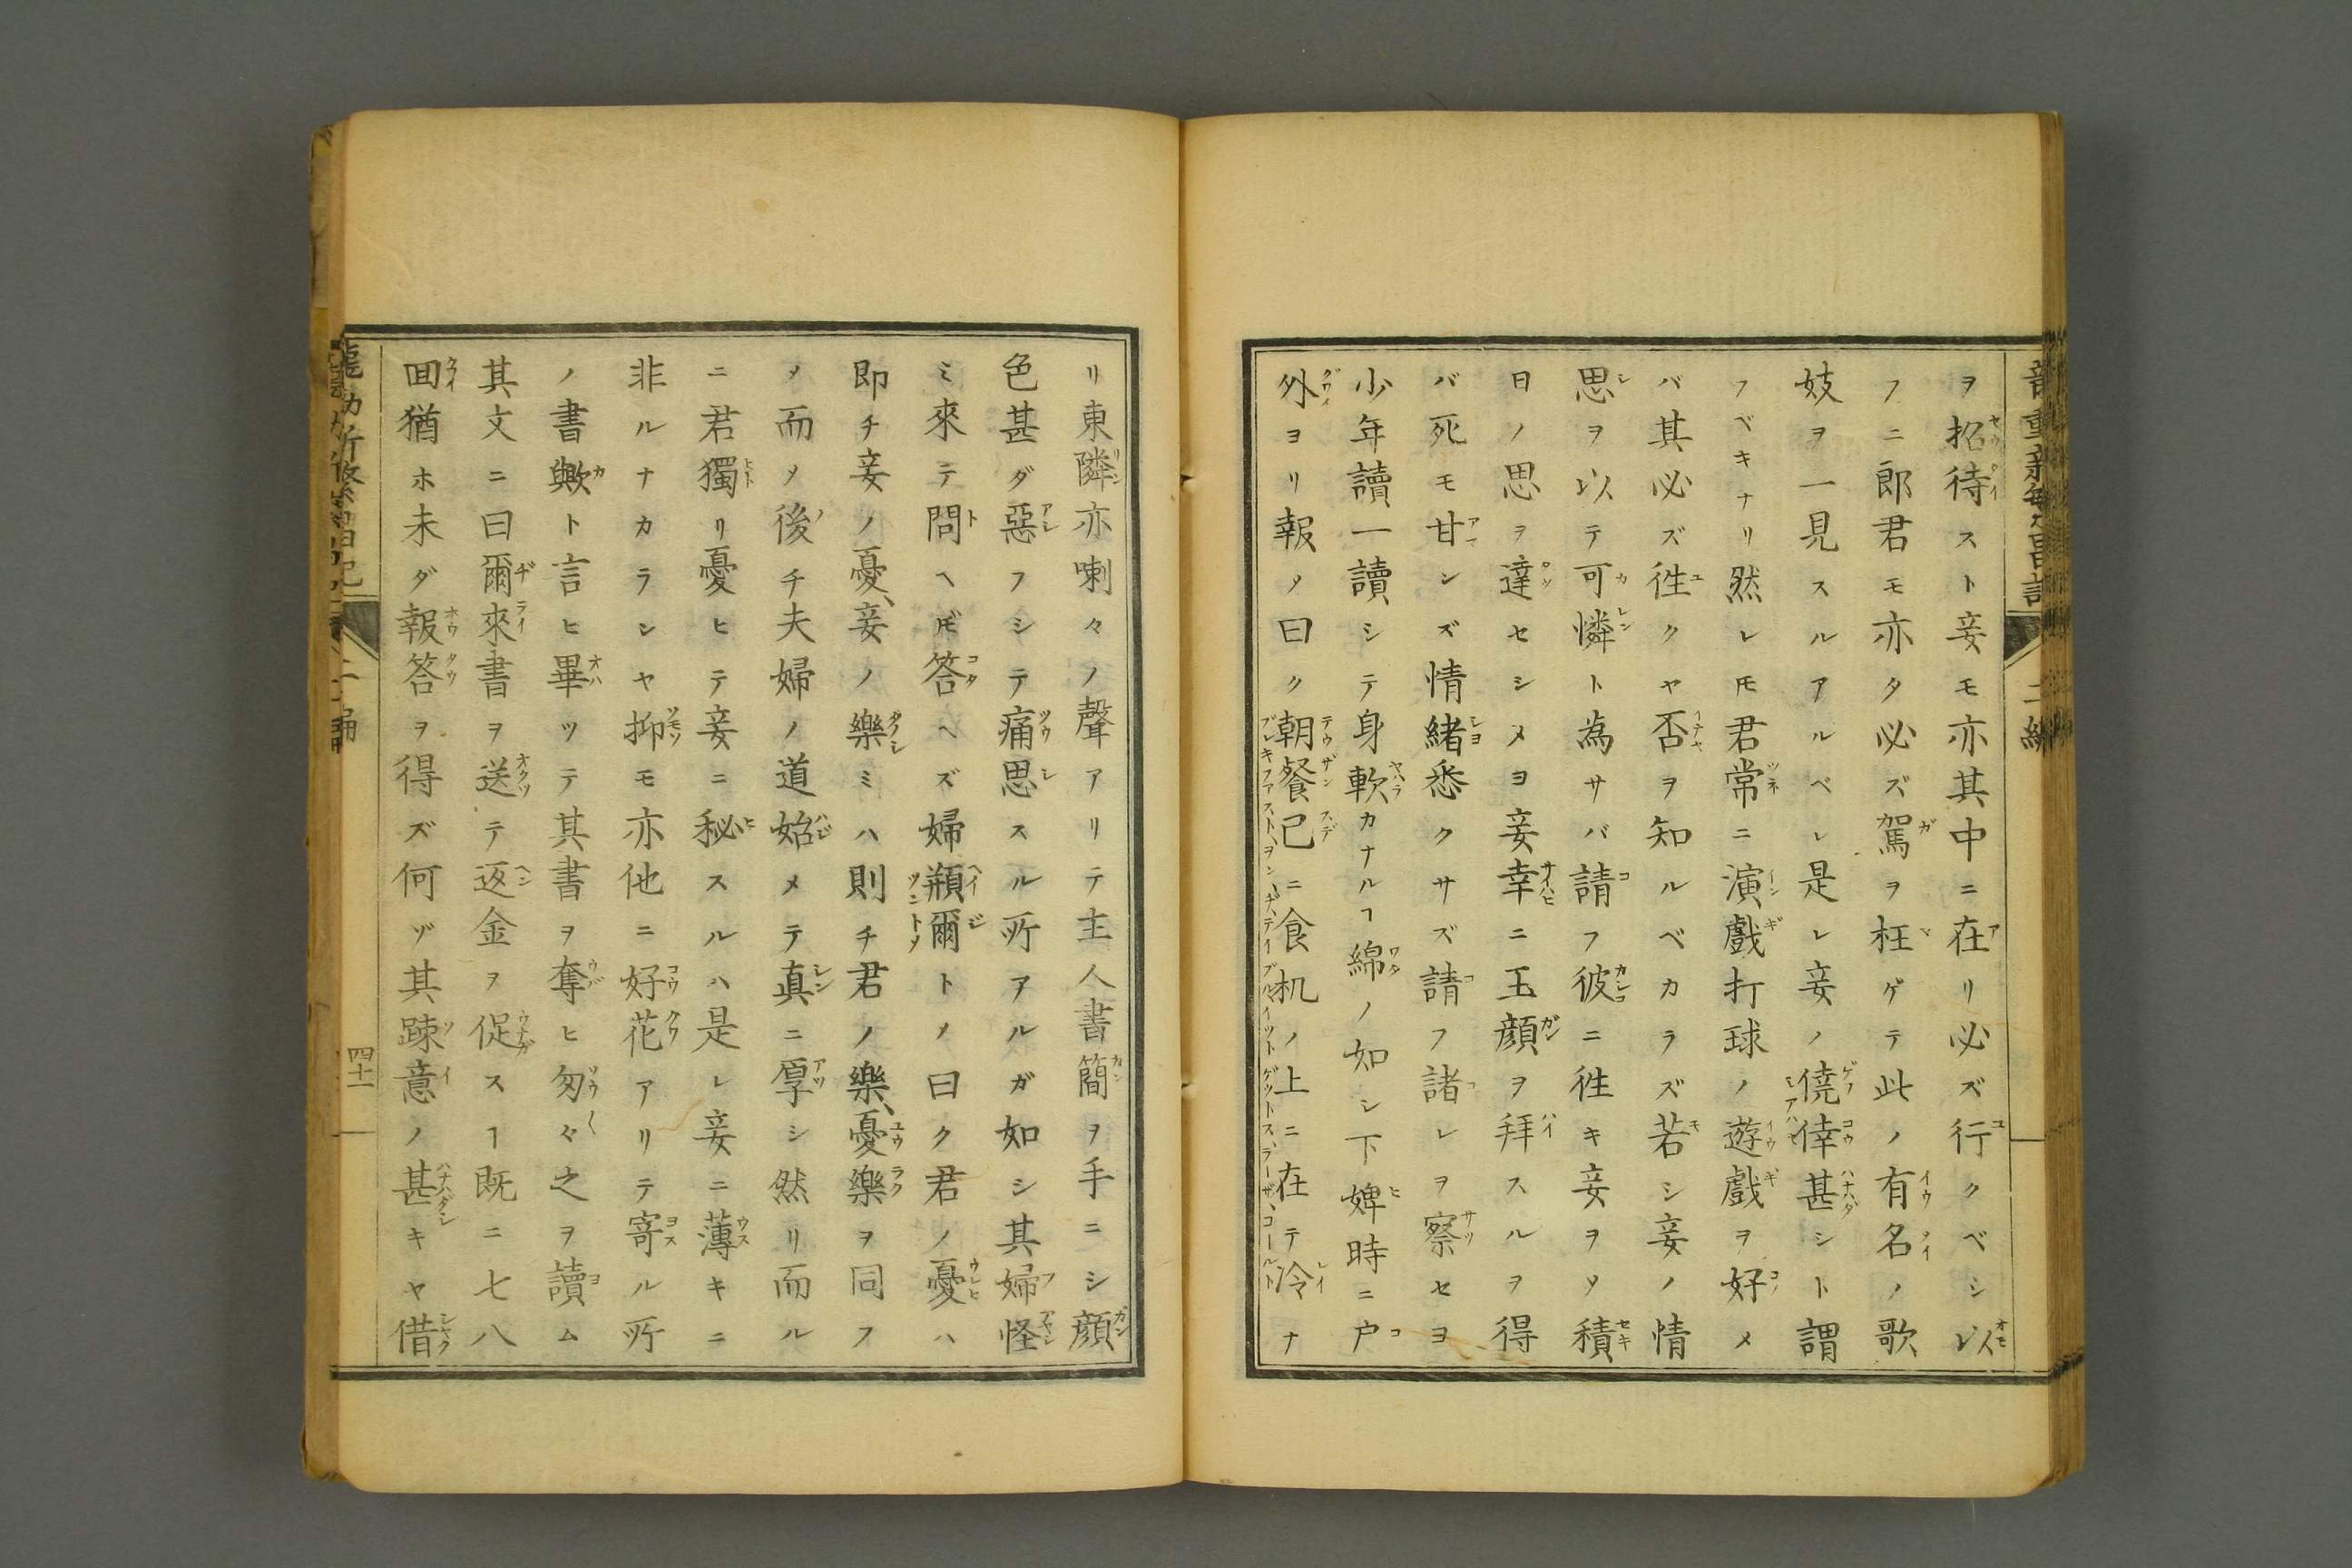 ヲ招待スト妾モ亦其中ニ在リ必ズ行クベシ以
フニ郎君モ亦タ必ズ駕ヲ枉ゲテ此ノ有名ノ歌
妓ヲ一見スルアルベレ是レ妾ノ僥倖甚シト謂
フベキナリ然レ𪜈君常ニ演戲打球ノ遊戲ヲ好メ
バ其必ズ徃クヤ否ヲ知ルベカラズ若シ妾ノ情
思ヲ以テ可憐ト為サバ請フ彼ニ徃キ妾ヲソ積
日ノ思ヲ達セシメヨ妾幸ニ玉顔ヲ拜スルヲ得
バ死モ甘ンズ情緒悉クサズ請フ諸レヲ察セヨ
少年讀一讀シテ身軟カナルヿ綿ノ如シ下婢時ニ戸
外ヨリ報ソ曰ク朝餐已ニ食机ノ上ニ在テ冷ナ
リ東隣亦喇々ノ聲アリテ主人書簡ヲ手ニシ顔
色甚ダ惡フシテ痛思スル所アルガ如シ其婦怪
ミ來テ問ヘ𪜈答ヘズ婦頩爾トソ曰ク君ノ憂ハ
即チ妾ノ憂、妾ノ樂ミハ則チ君ノ樂、憂樂ヲ同フ
ソ而ソ後チ夫婦ノ道始メテ真ニ厚シ然リ而ル
ニ君獨リ憂ヒテ妾ニ秘スルハ是レ妾ニ薄キニ
非ルナカラシヤ抑モ亦他ニ好花アリテ寄ル所
ノ書歟ト言ヒ畢ツテ其書ヲ奪ヒ匆々之ヲ讀ム
其文ニ曰爾來書ヲ送テ返金ヲ促スヿ既ニ七八
回猶ホ未ダ報答ヲ得ズ何ゾ其踈意ノ甚キヤ借
二編
四十一